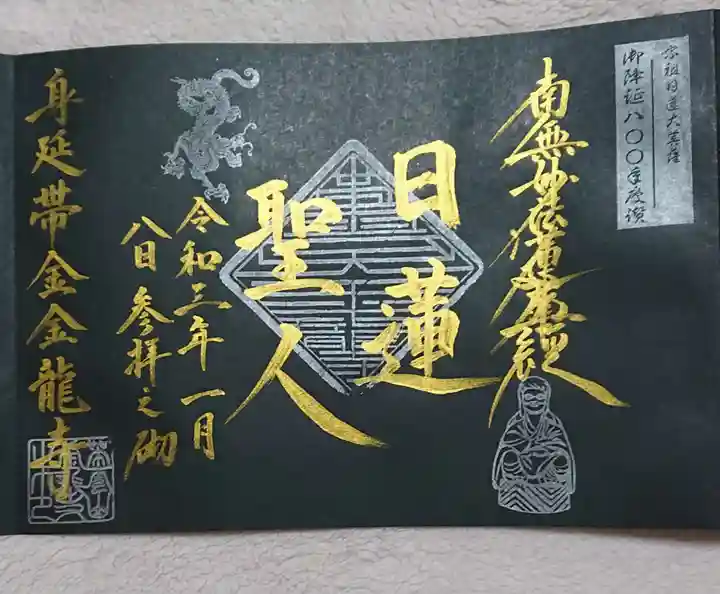 宗祖日蓮大菩薩
御降誕八〇〇年慶讃
南無妙法蓮華経
日蓮
聖人
令和三年一月
八日参拝之砌
身延帯金金龍寺